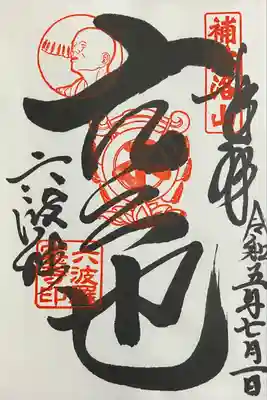 奉拝
令和五年七月一日
補陀洛山
空也
六波羅蜜寺
六波羅蜜寺印